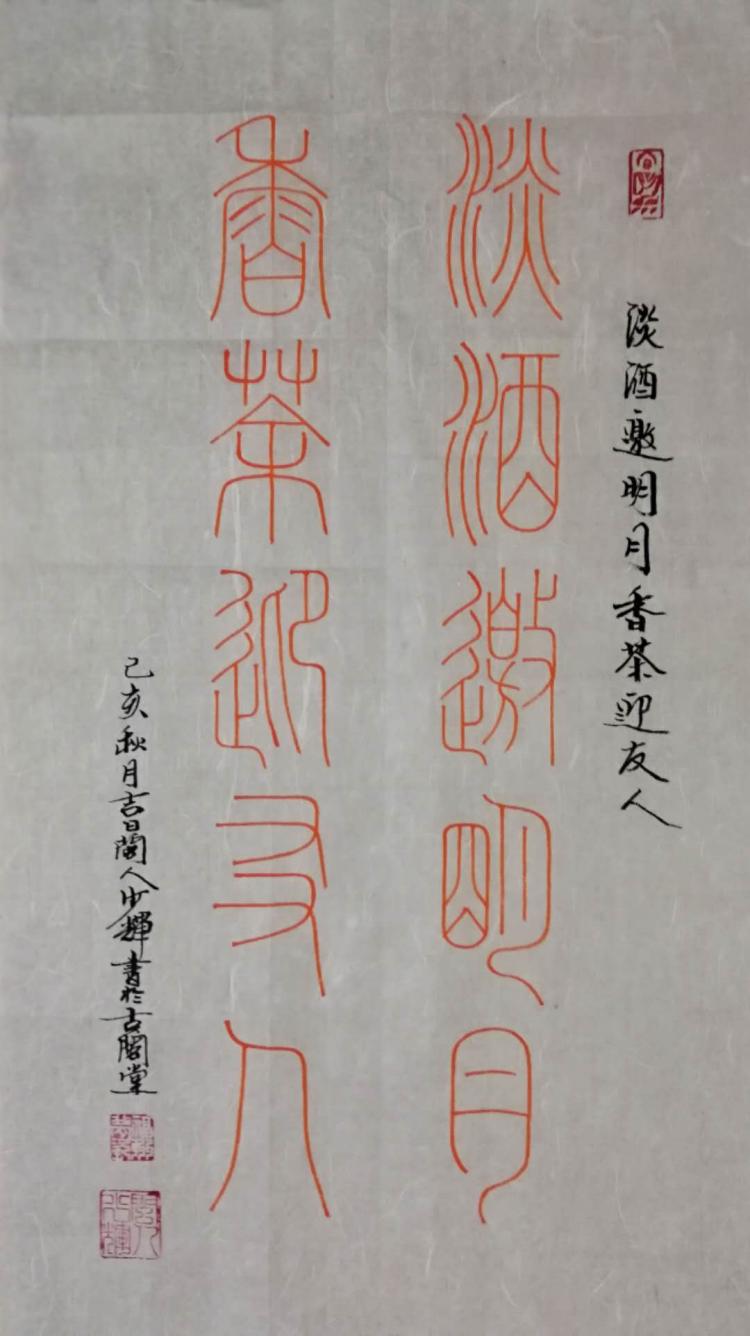 淡酒邀明月香茶迎友人
淡酒邀明月
香茶迎友人
己亥秋月吉日閩人少輝書於古閣堂